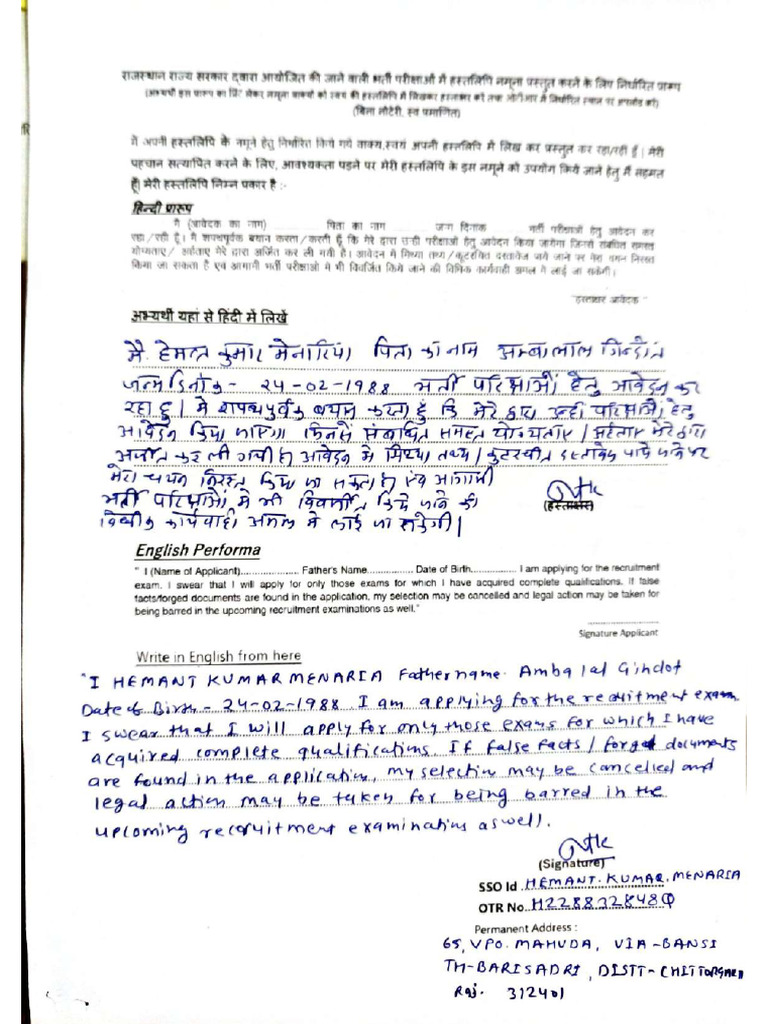 राजस्थान राज्य सरकार द्वारा आयोजित की जाने वाली भर्ती परीक्षाओं में हस्तलिपि नमूना प्रस्तुत करने के लिए निर्धारित प्रारूप
(अभ्यर्थी इस प्रारूप का प्रिंट लेकर नमूना वाक्यों को स्वयं की हस्तलिपि में लिखकर हस्ताक्षर करें तथा ओटीआर में निर्धारित स्थान पर अपलोड करें)
(बिना नोटेरी, स्व प्रमाणित)
मैं अपनी हस्तलिपि के नमूने हेतु निर्धारित किये गये वाक्य,स्वयं अपनी हस्तलिपि में लिख कर प्रस्तुत कर रहा/रही हूँ | मेरी
पहचान सत्यापित करने के लिए, आवश्यकता पड़ने पर मेरी हस्तलिपि के इस नमूने को उपयोग किये जाने हेतु मैं सहमत
हूँ| मेरी हस्तलिपि निम्न प्रकार है :-
हिन्दी प्रारूप
मैं (आवेदक का नाम) पिता का नाम जन्म दिनांक भर्ती परीक्षाओं हेतु आवेदन कर
रहा/रही हूँ। मैं शपथपूर्वक बयान करता/करती हूँ कि मेरे द्वारा उन्हीं परीक्षाओं हेतु आवेदन किया जायेगा जिनसे संबंधित समस्त
योग्यताएं/ अर्हताएं मेरे द्वारा अर्जित कर ली गयी है। आवेदन में मिथ्या तथ्य/कूटरचित दस्तावेज पाये जाने पर मेरा चयन निरस्त
किया जा सकता है एवं आगामी भर्ती परीक्षाओं में भी विवर्जित किये जाने की विधिक कार्यवाही अमल में लाई जा सकेगी।
"हस्ताक्षर आवेदक "
अभ्यर्थी यहां से हिंदी में लिखें
मैं हेमन्त कुमार मेनारिया पिता का नाम अम्बालाल
जन्म दिनांक - 24-02-1988 भर्ती परिक्षाओं हेतु आवेदन कर
रहा हु। मे शपथपुर्वक बयान करता हूँ कि मेरे द्वारा उन्हीं परिक्षाओं हेतु
आवेदन किया जाएगा जिनसे संबंधित समस्त योग्यताए / अर्हताए मेरे द्वारा
अर्जीत कर ली गयी है आवेदन मे मिथ्या तथ्य / कुटरचीत दस्तावेज पाये जाने पर
मेरा चयन निरस्त किया जा सकता है एंव आगामी
भर्ती परिक्षाओं मे भी विवर्जीत किये जाने की
विधीक कार्यवाही अमल मे लाई जा सकेगी।
(हस्ताक्षर)
English Performa
" I (Name of Applicant)..................... Father's Name............... Date of Birth................ I am applying for the recruitment
exam. I swear that I will apply for only those exams for which I have acquired complete qualifications. If false
facts/forged documents are found in the application, my selection may be cancelled and legal action may be taken for
being barred in the upcoming recruitment examinations as well."
Signature Applicant
Write in English from here
"I HEMANT KUMAR MENARIA Father name. Ambalal Gindot
Date of Birth - 24-02-1988 I am applying for the recruitment exam
I swear that I will apply for only those exams for which I have
acquired complete qualifications. If false facts / forged documents
are found in the application, my selection may be cancelled and
legal action may be taken for being barred in the
upcoming recruitment examinations as well.
(Signature)
SSO Id HEMANT.KUMAR.MENARIA
OTR No. H2288328480
Permanent Address :
65, VPO. MAHUDA, VIA-BANSI
TH-BARISADRI, DISTT-CHITTORGARH
Raj. 312401